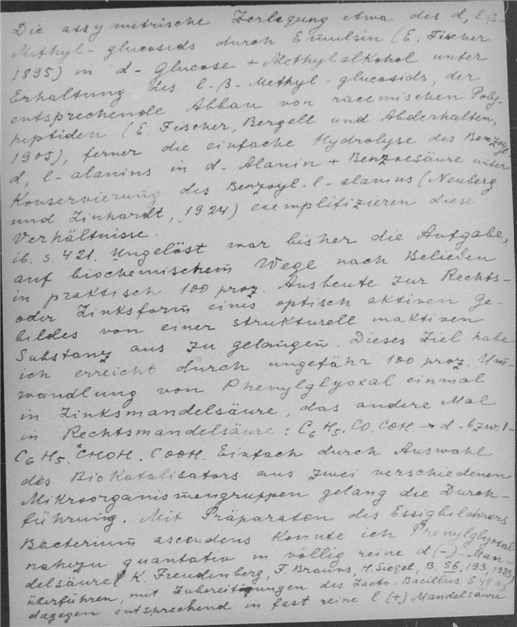 Die assymetrische Zerlegung etwa des d, l-β-
Methyl-glucosids durch Emulsin (E. Fischer
1895) in d-Glucose + Methylalkohol unter
Erhaltung des l-β-Methyl-glucosids, der
entsprechende Abbau von racemischen Poly-
peptiden (E. Fischer, Bergell und Abderhalten,
1905), ferner die einfache Hydrolyse des Benzoyl
d, l-alanins in d-Alanin + Benzoesäure unter
Konservierung des Benzoyl.l-alanins (Neuberg
und Linhardt, 1924) exemplifizieren diese
Verhältnisse.
ib. s. 421. Ungelöst war bisher die Aufgabe,
auf biochemischem Wege nach Belieben
in praktisch 100 proz. Ausbeute zur Rechts-
oder Linksform eines optisch aktiven Ge-
bildes von einer strukturell inaktiven
Substanz aus zu gelangen. Dieses Ziel habe
ich erreicht durch ungefähr 100 proz. Um-
wandlung von Phenylglyoxal einmal
in Linksmandelsäure, das andere Mal
in Rechtsmandelsäure: C6H5.CO.COH → d-bzw.l-
C6H5.*CHOH.COOH. Einfach durch Auswahl
des Biokatalisators aus zwei verschiedenen
Mikroorganismengruppen gelang die Durch-
führung. Mit Präparaten des Essigbildners
Bacterium ascendens konnte ich Phenylglyoxal
nahezu quantativ in völlig reine d(-)-Man-
delsäure( K. Freudenberg, F. Brauns, H. Siegel, B. 56, 193, 1923)
überführen, mit Zubereitungen des Lacto-Bacillus
dagegen entsprechend in fast reine l(+) Mandelsäure